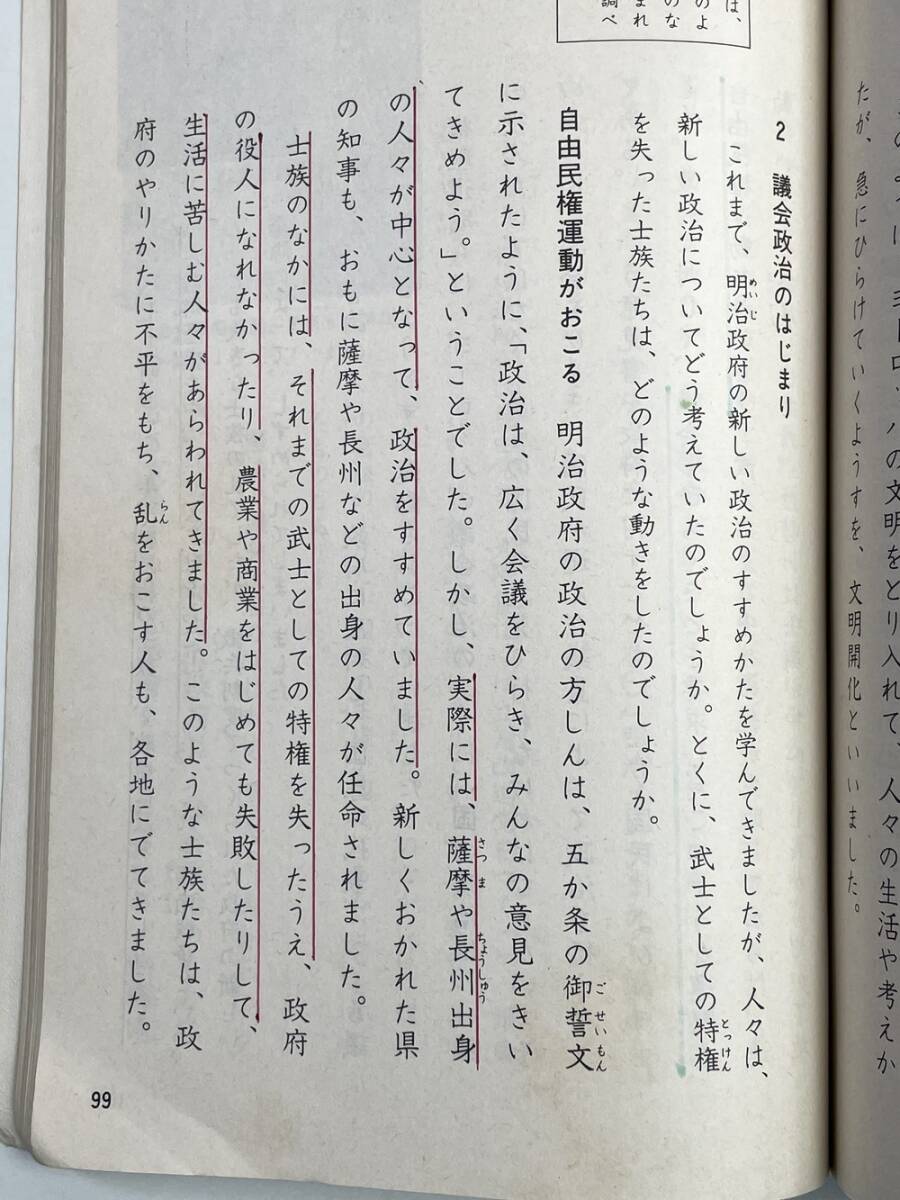 のようにヨーロッパの文明をとり入れて、人々の生活や考えか
たが、急にひらけていくようすを、文明開化といいました。
2 議会政治のはじまり
これまで、明治政府の新しい政治のすすめかたを学んできましたが、人々は、
めいじ
新しい政治についてどう考えていたのでしょうか。とくに、武士としての特権
とっけん
を失った士族たちは、どのような動きをしたのでしょうか。
自由民権運動がおこる 明治政府の政治の方しんは、五か条の御誓文
ごせいもん
に示されたように、「政治は、広く会議をひらき、みんなの意見をきい
てきめよう。」ということでした。しかし、実際には、薩摩や長州出身
さつま ちょうしゅう
の人々が中心となって、政治をすすめていました。新しくおかれた県
の知事も、おもに薩摩や長州などの出身の人々が任命されました。
士族のなかには、それまでの武士としての特権を失ったうえ、政府
の役人になれなかったり、農業や商業をはじめても失敗したりして、
生活に苦しむ人々があらわれてきました。このような士族たちは、政
府のやりかたに不平をもち、乱をおこす人も、各地にでてきました。
らん
は、
のよ
のな
まれ
調べ
99